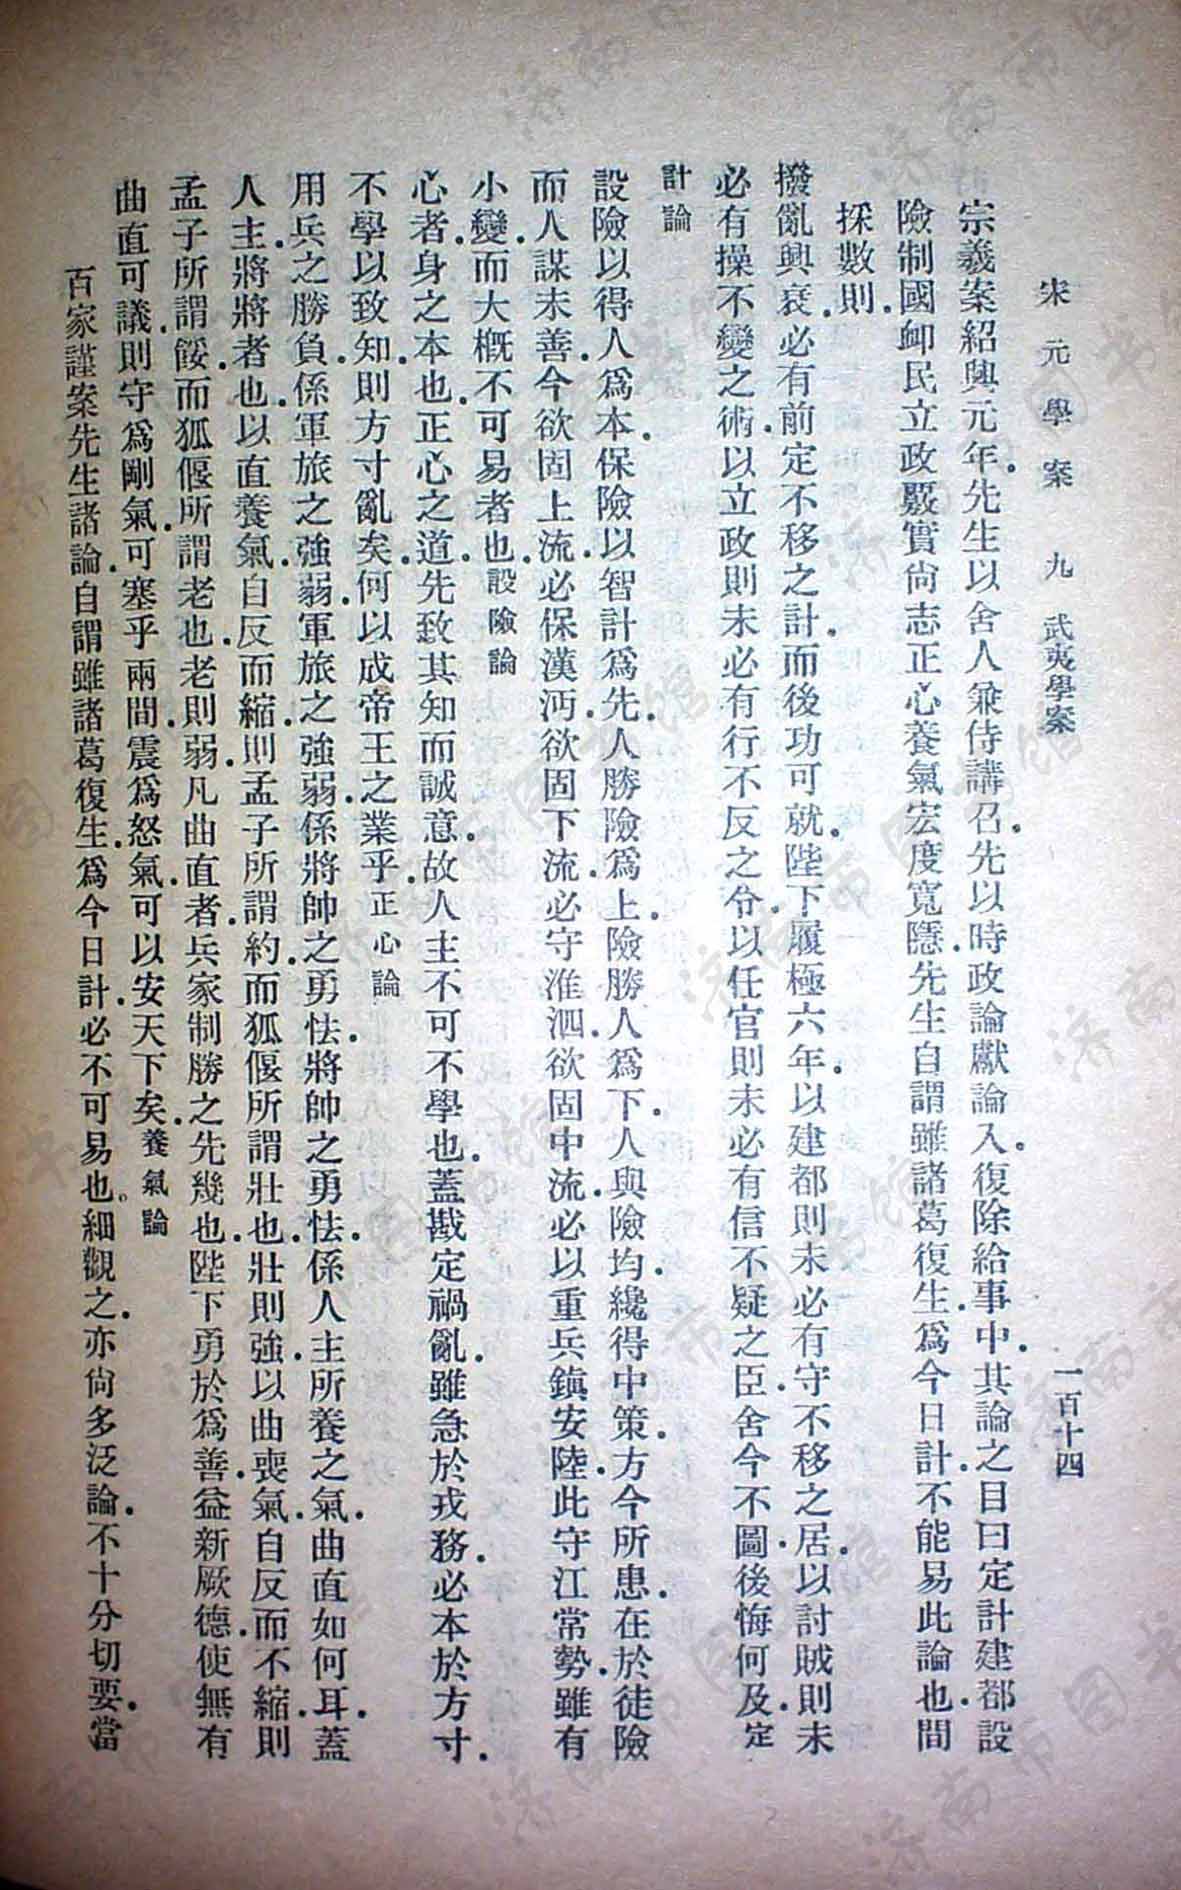 宋元學案 九 武夷學案 一百十四
宗羲案紹興元年.先生以舍人兼侍講召.先以時政論獻論入.復除給事中.其論之目曰定計建都設
險制國卹民立政覈實尙志正心養氣宏度寬隱.先生自謂雖諸葛復生.爲今日計.不能易此論也間
採數則.
撥亂興衰.必有前定不移之計.而後功可就.陛下履極六年.以建都則未必有守不移之居.以討賊則未
必有操不變之術.以立政則未必有行不反之令.以任官則未必有信不疑之臣.舍今不圖.後悔何及.定
計論
設險以得人爲本.保險以智計爲先.人勝險爲上.險勝人爲下.人與險均.纔得中策.方今所患.在於徒險
而人謀未善.今欲固上流.必保漢沔.欲固下流.必守淮泗.欲固中流.必以重兵鎭安陸.此守江常勢.雖有
小變.而大槪不可易者也.設險論
心者.身之本也.正心之道.先致其知而誠意.故人主不可不學也.蓋戡定禍亂.雖急於戎務.必本於方寸.
不學以致知.則方寸亂矣.何以成帝王之業乎.正心論
用兵之勝負.係軍旅之強弱.軍旅之強弱.係將帥之勇怯.將帥之勇怯.係人主所養之氣.曲直如何耳.蓋
人主.將將者也.以直養氣.自反而縮.則孟子所謂約.而狐偃所謂壯也.壯則強.以曲喪氣.自反而不縮.則
孟子所謂餒.而狐偃所謂老也.老則弱.凡曲直者.兵家制勝之先幾也.陛下勇於爲善.益新厥德.使無有
曲直可議.則守爲剛氣.可塞乎兩間.震爲怒氣.可以安天下矣.養氣論
百家謹案先生諸論.自謂雖諸葛復生.爲今日計.必不可易也。細觀之.亦尙多泛論.不十分切要.當